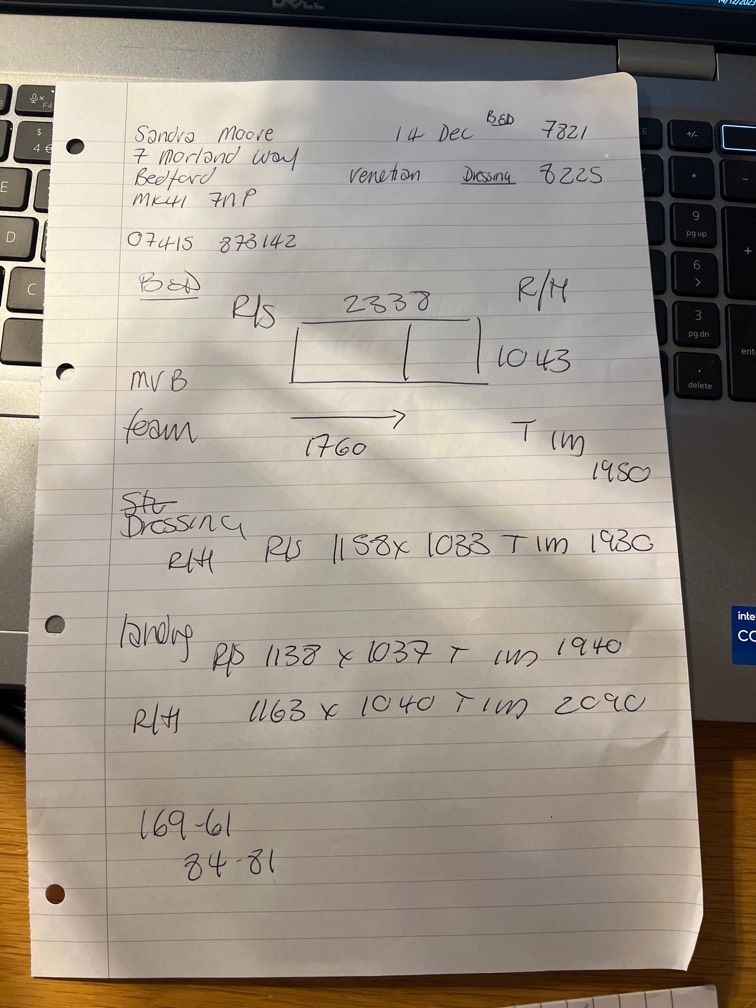 DELL
14/12/2023
Sandra Moore 14 Dec BED 7821
7 Morland Way
Bedford Venetian Dressing 8225
MK41 7NP
07415 873142
BED
R/S 2338 R/H
1043
MVB
feam
1760
T 1m
1950
Dressing
R/H R/S 1158 x 1033 T 1m 1930
landing R/S 1138 x 1037 T 1m 1940
R/H 1163 x 1040 T 1m 2090
169-61
84-81
F4
$
4 €
E
D
C
+/-
*
-
9
pg up
+
6
>
3
pg dn
ent
.
delete
inte
CO